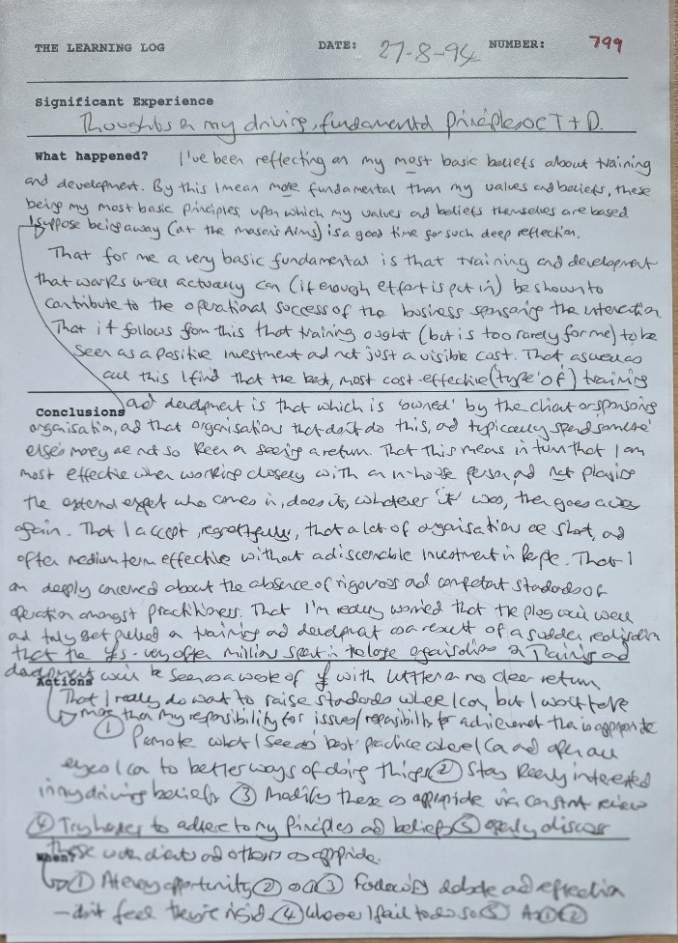 THE LEARNING LOG DATE: 27-8-94 NUMBER: 799
Significant Experience
Thoughts on my driving, fundamental principles of T + D.
What happened? I've been reflecting on my most basic beliefs about training
and development. By this I mean more fundamental than my values and beliefs, these
being my most basic principles upon which my values and beliefs themselves are based
I suppose being away (at the mason's Arms) is a good time for such deep reflection.
That for me a very basic fundamental is that training and development
that works well actually can (if enough effort is put in) be shown to
contribute to the operational success of the business sponsoring the intervention
That it follows from this that training ought (but is too rarely for me) to be
seen as a positive investment and not just a visible cost. That as well as
all this I find that the best, most cost-effective (type of) training
Conclusions and development is that which is 'owned' by the client or sponsoring
organisation, and that organisations that don't do this, and typically spend someone
else's money are not so keen on seeing a return. That this means in turn that I am
most effective when working closely with an in-house person, and not playing
the external expert who comes in, does it, whatever 'it' was, then goes away
again. That I accept, regretfully, that a lot of organisations are short, and
often medium term effective without a discernable investment in People. That I
am deeply concerned about the absence of rigorous and competent standards of
operation amongst practitioners. That I'm really worried that the plug will well
and truly get pulled on training and development as a result of a sudden realisation
that the £s - very often millions spent in the large organisations on Training and
development will be seen as a waste of £ with little or no clear return.
Actions That I really do want to raise standards where I can, but I won't take
more than my responsibility for issues/responsibility for achievement than is appropriate
① Promote what I see as 'best' practice where I can and open all
eyes I can to better ways of doing things ② Stay keenly interested
in my driving beliefs ③ Modify these as appropriate via constant review
④ Try harder to adhere to my principles and beliefs ⑤ openly discuss
these with clients and others as appropriate.
When? ① At every opportunity ② as ① ③ Following debate and reflection
- don't feel they're rigid ④ Where I fail to do so ⑤ As ① ②